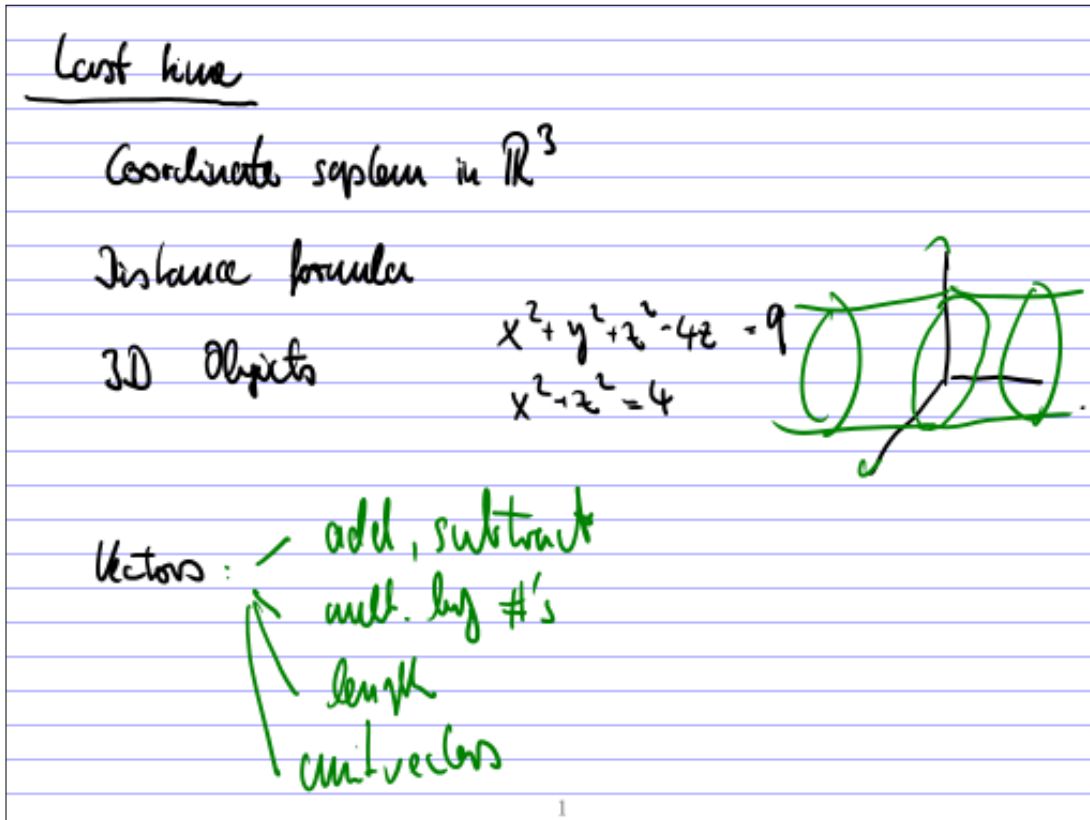 Last time
Coordinate system in ℝ³
Distance formula
3D Objects
x² + y² + z² - 4z = 9
x² + z² = 4
Vectors :
add, subtract
mult. by #'s
length
unit vectors
1